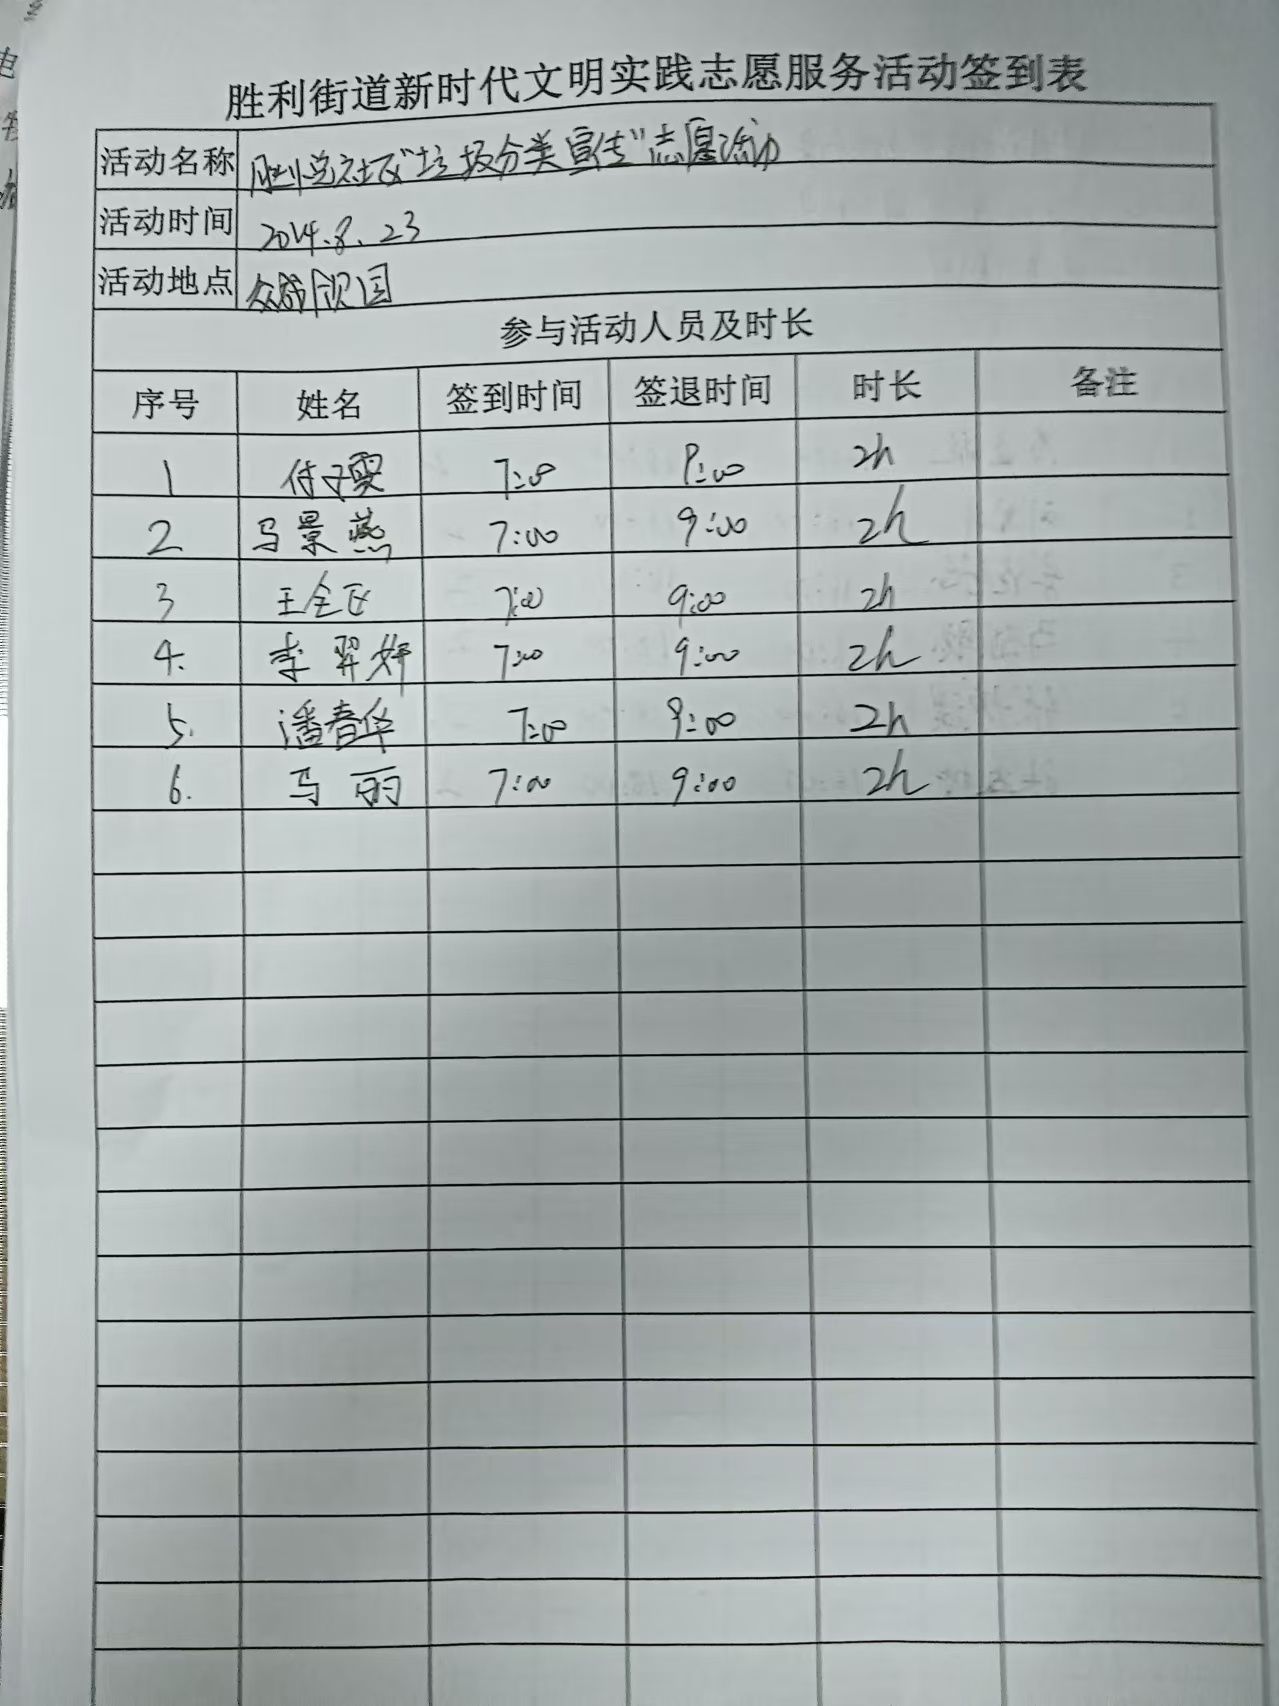 胜利街道新时代文明实践志愿服务活动签到表
活动名称 胜利总社区"垃圾分类宣传"志愿活动
活动时间 2024.8.23
活动地点 众成颐园
参与活动人员及时长
序号 姓名 签到时间 签退时间 时长 备注
1 付子雯 7:00 9:00 2h
2 马景燕 7:00 9:00 2h
3 王全正 7:00 9:00 2h
4. 李羿妍 7:00 9:00 2h
5. 潘春华 7:00 9:00 2h
6. 马丽 7:00 9:00 2h